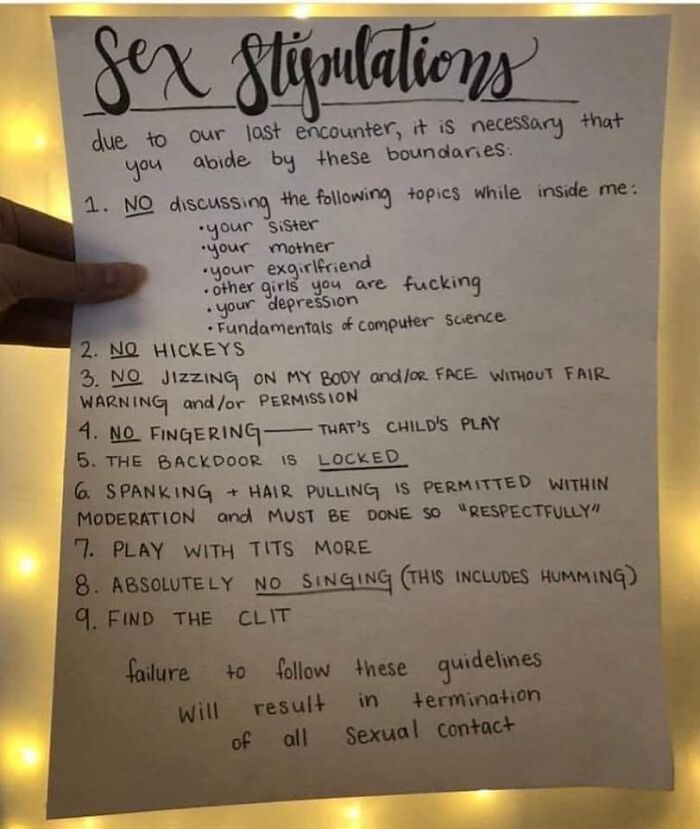 Sex Stipulations
due to our last encounter, it is necessary that
you abide by these boundaries:
1. NO discussing the following topics while inside me:
•your sister
•your mother
•your exgirlfriend
•other girls you are fucking
•your depression
•Fundamentals of computer science
2. NO HICKEYS
3. NO JIZZING ON MY BODY and/OR FACE WITHOUT FAIR
WARNING and/or PERMISSION
4. NO FINGERING — THAT'S CHILD'S PLAY
5. THE BACKDOOR IS LOCKED
6. SPANKING + HAIR PULLING IS PERMITTED WITHIN
MODERATION and MUST BE DONE SO "RESPECTFULLY"
7. PLAY WITH TITS MORE
8. ABSOLUTELY NO SINGING (THIS INCLUDES HUMMING)
9. FIND THE CLIT
failure to follow these guidelines
will result in termination
of all sexual contact